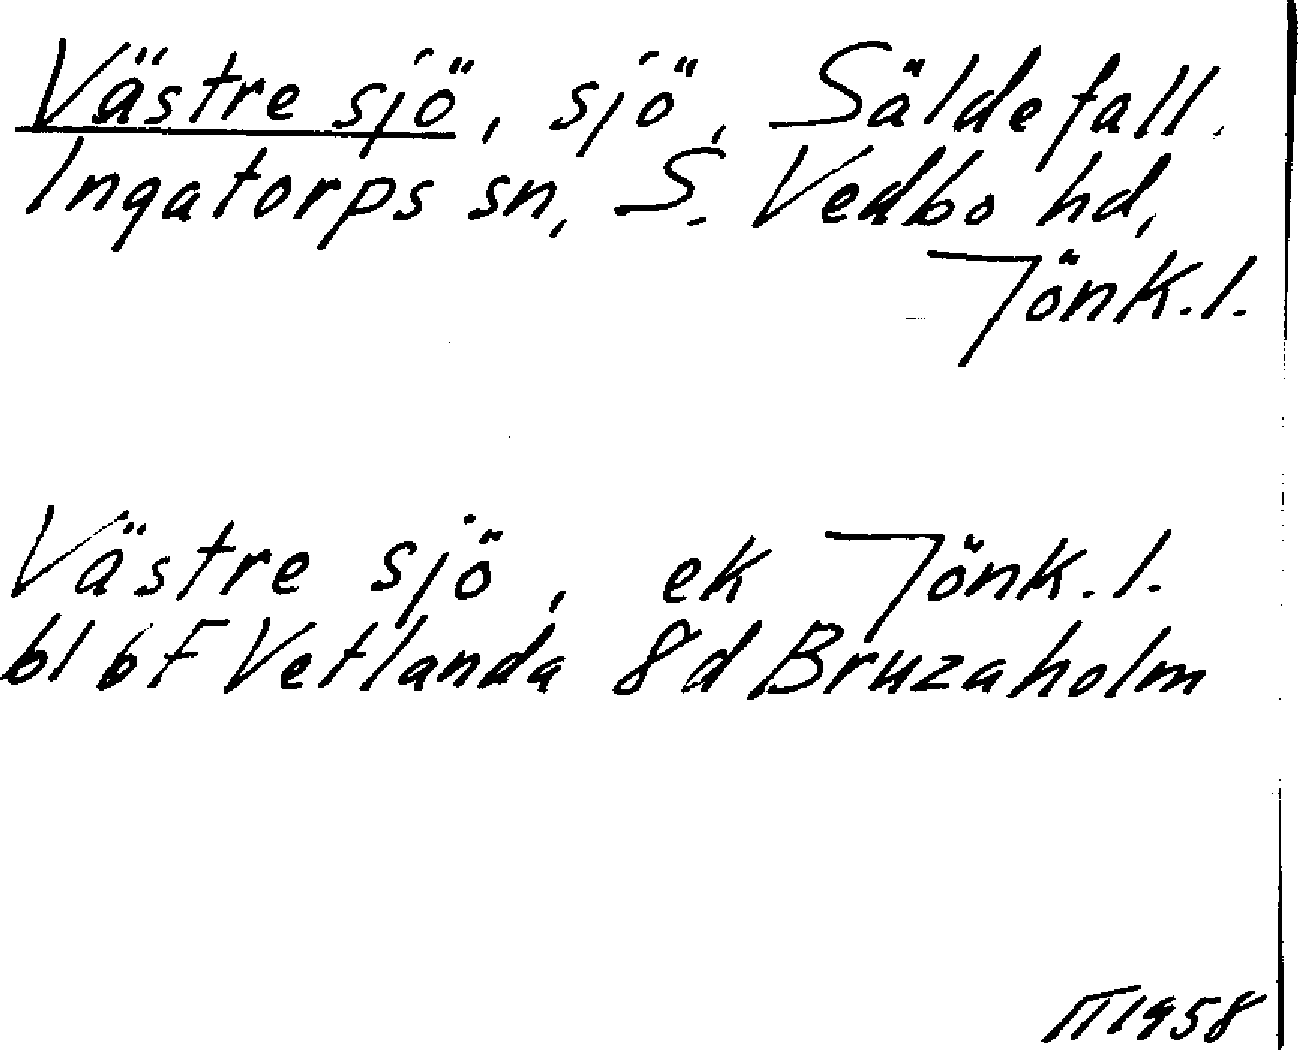 Västre sjö, sjö, Säldefall.
Ingatorps sn, S. Vedbo hd,
Jönk.l.
Västre sjö, ek Jönk.l.
bl 6F Vetlanda 8d Bruzaholm
1958